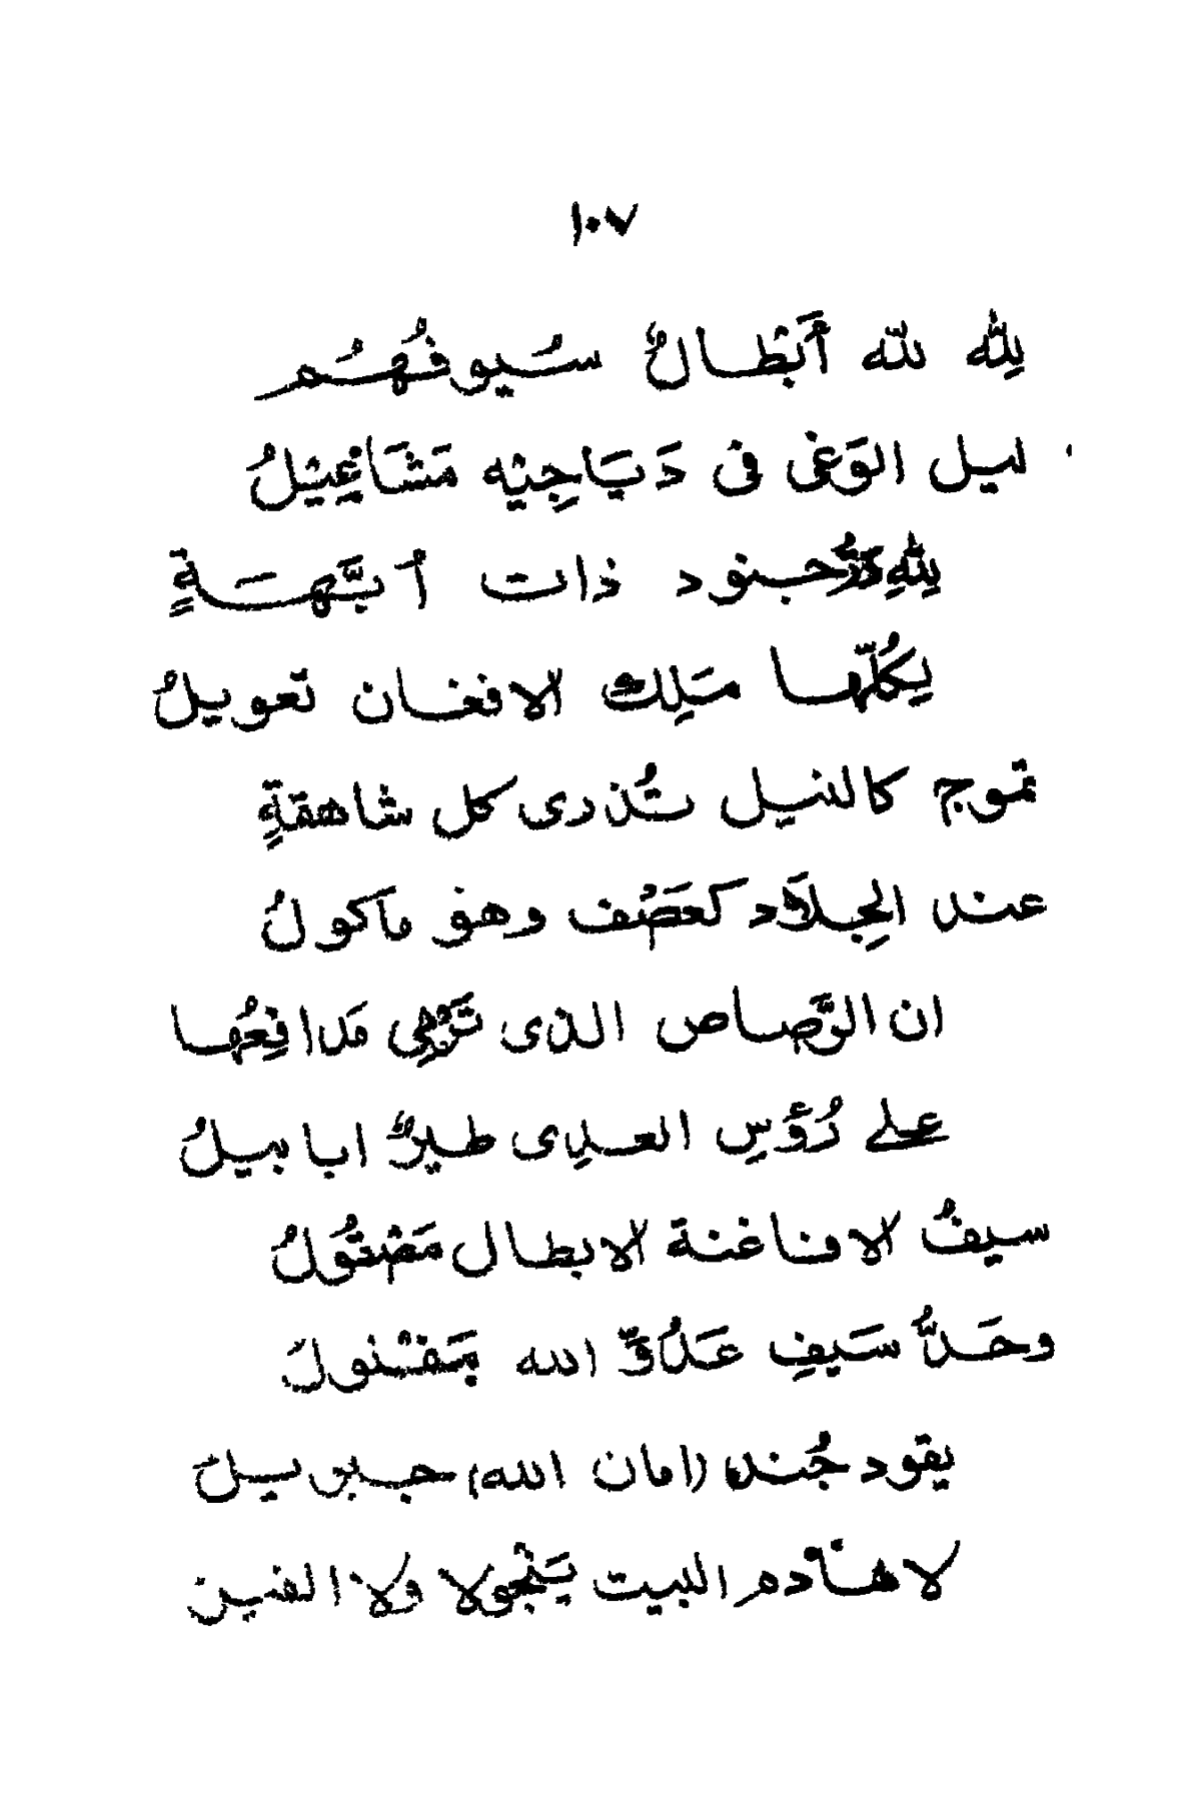 ١٠٧
لِلّٰه للّه أَبْطـالٌ سـُيوفُهُـم
ليـل الوَغٰى فى دَيَاجِيْه مَشَاعِيْلُ
لِلّٰهِ دَرُّ جـنود ذات أُبَّهَـةٍ
يِكُلّهـا مَلِك الافغـان تعويلُ
تموج كالنيل تُذرى كل شاهقةٍ
عند الجِلاَد كعَصْف وهو مأكولُ
ان الرَّصـاص الذى تَرْمِى مَدافِعُهـا
على رُؤسِ العـدِى طيرٌ ابابيلُ
سيفُ الافاغنة الابطال مَصْقُولُ
وحَـدُّ سَيفِ عَدُوِّ الله مَفْلولُ
يقود جُنده (امان الله) جـبريـل
لا هـادم البيت يَنْجو لا ولا الفيل